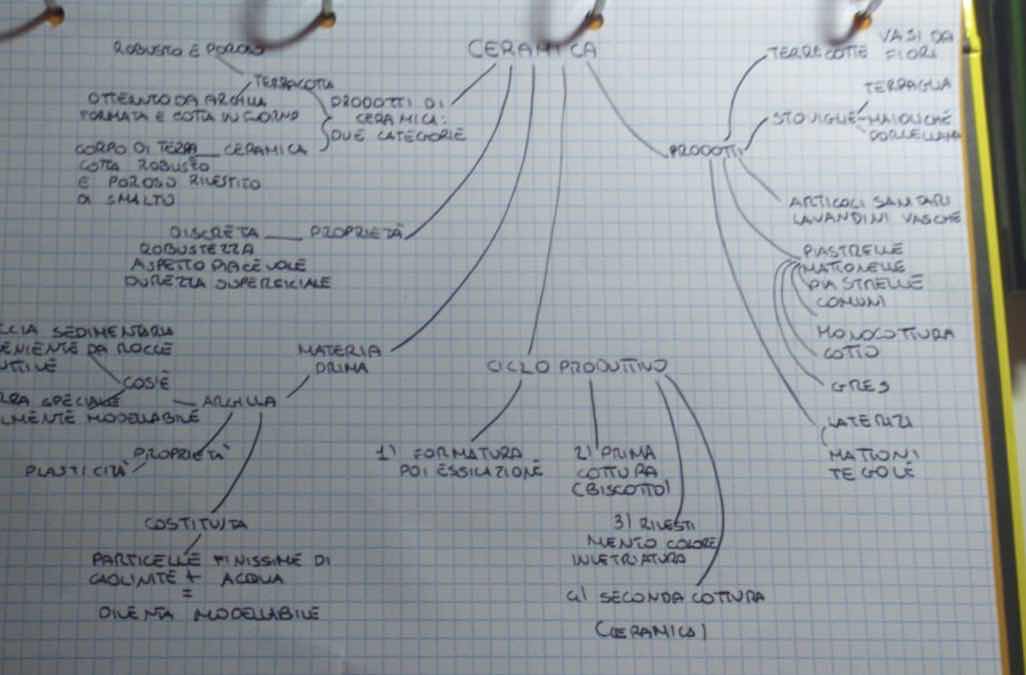 CERAMICA
ROBUSTO E POROSO
TERRACOTTA
OTTENUTO DA ARGILLA
FORMATA E COTTA IN FORNO
PRODOTTI DI
CERAMICA:
DUE CATEGORIE
CORPO DI TERRA CERAMICA
COTTA ROBUSTO
E POROSO RIVESTITO
DI SMALTO
DISCRETA PROPRIETÀ
ROBUSTEZZA
ASPETTO PIACEVOLE
DUREZZA SUPERFICIALE
MATERIA
PRIMA
CCIA SEDIMENTARIA
ENIENTE DA ROCCE
COS'È
RRA SPECIALE
LMENTE MODELLABILE
ARGILLA
PROPRIETA'
PLASTICITA'
COSTITUITA
PARTICELLE FINISSIME DI
CAOLINITE + ACQUA
=
DIVENTA MODELLABILE
CICLO PRODUTTIVO
1) FORMATURA
POI ESSICAZIONE
2) PRIMA
COTTURA
(BISCOTTO)
3) RIVESTI
MENTO COLORE
INVETRIATURA
4) SECONDA COTTURA
(CERAMICA)
PRODOTTI
TERRECOTTE VASI DA
FIORI
TERRAGLIA
STOVIGLIE MAIOLICHE
PORCELLANA
ARTICOLI SANITARI
LAVANDINI VASCHE
PIASTRELLE
MATTONELLE
PIASTRELLE
COMUNI
MONOCOTTURA
COTTO
GRES
LATERIZI
MATTONI
TEGOLE